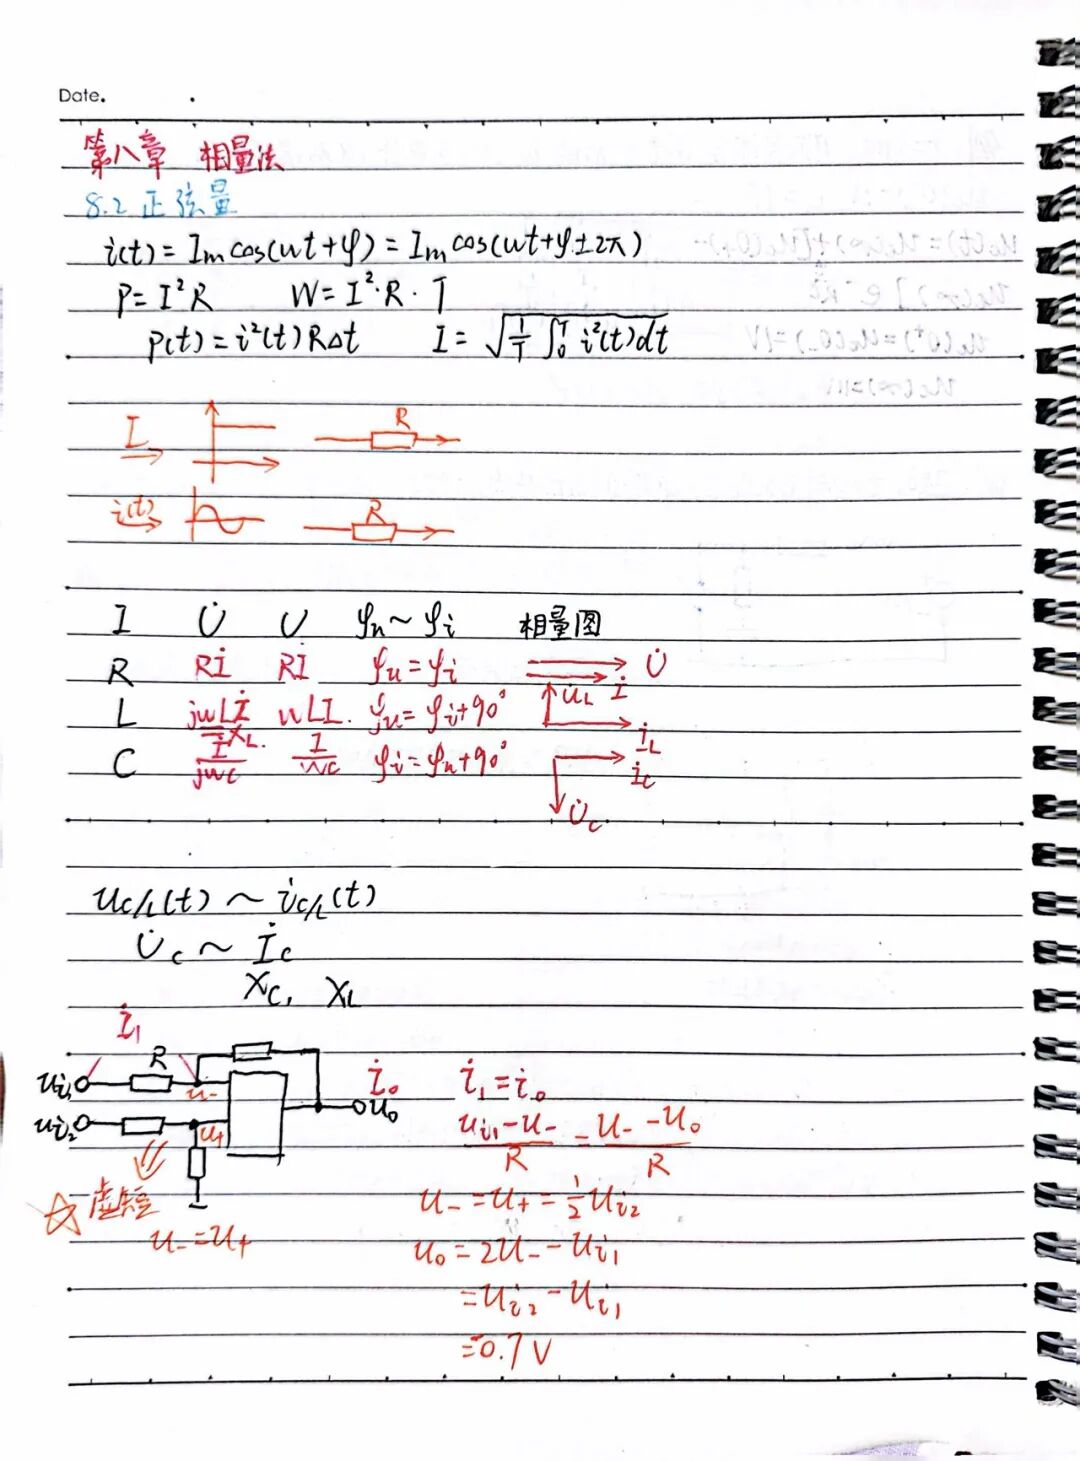 Date.
第八章 相量法
8.2 正弦量
i(t) = Im cos(wt+φ) = Im cos(wt+φ±2π)
P = I²R W = I²·R·T
p(t) = i²(t)RΔt I = √(1/T ∫₀ᵀ i²(t)dt)
I R
i(t) R
I U̇ U φu~φi 相量图
R Rİ Rİ φu=φi U̇ İ
L jwLİ wLI. φu=φi+90° u̇L i̇L
XL.
C İ/jwc I/wc φi=φu+90° i̇c U̇c
uC/L(t) ~ iC/L(t)
U̇c ~ İc
Xc, XL
i̇₁
R
ui₁ u- i̇o i̇₁=i̇o
ui₂ u+ uo (ui₁-u-)/R = (u--uo)/R
☆ 虚短 u-=u+=½ui₂
u-=u+ uo=2u--ui₁
=ui₂-ui₁
=0.7V